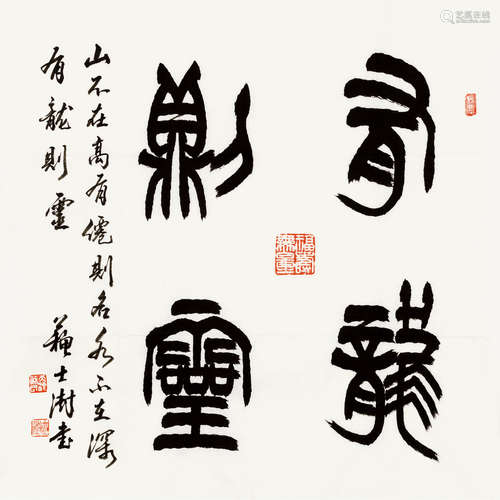 艺狐在线
有龍
則靈
山不在高有僊則名水不在深
有龍則靈
蘇士澍書